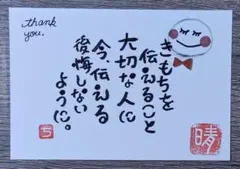 thank you.
きもちを
伝えること
大切な人に
今、伝える
後悔しない
ように。
ち
晴